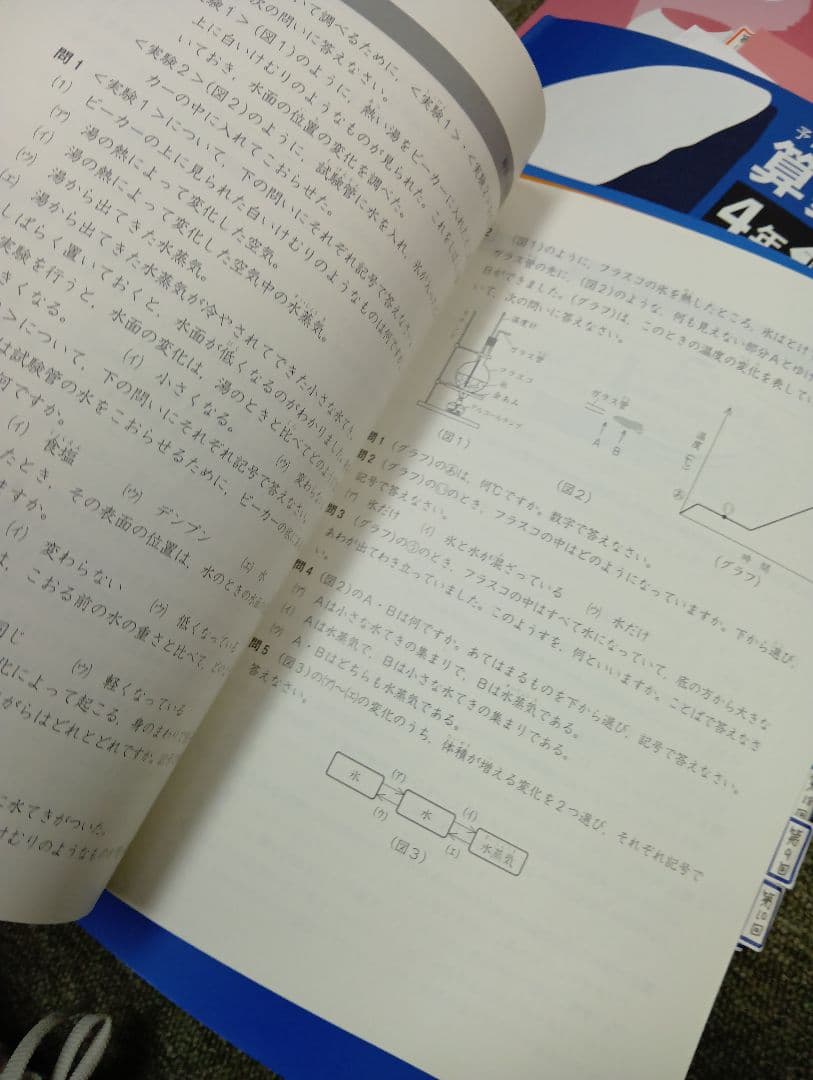 いて調べるために、<実験1>・<実験
次の問いに答えなさい。
験1>(図1)のように、熱い湯をビーカーに入れた
上に白いけむりのようなものが見られた。これをしば
いておき、水面の位置の変化を調べた。
<実験2>(図2)のように、試験管に水を入れ、氷が入った
カーの中に入れてこおらせた。
問1 <実験1>について、下の問いにそれぞれ記号で答えな
(1) ビーカーの上に見られた白いけむりのようなものは何です
(ア) 湯の熱によって変化した空気。
(イ) 湯の熱によって変化した空気中の水蒸気。
(ウ) 湯から出てきた水蒸気。
(エ) 湯から出てきた水蒸気が冷やされてできた小さな水て
しばらく置いておくと、水面が低くなるのがわかりました。
実験を行うと、水面の変化は、湯のときと比べてどのよ
きくなる。 (イ) 小さくなる。 (ウ) 変わらな
>について、下の問いにそれぞれ記号で答えな
は試験管の水をこおらせるために、ビーカーの氷に
何ですか。
(イ) 食塩 (ウ) デンプン (エ) 氷
たとき、その表面の位置は、水のときの水面
ますか。
(イ) 変わらない (ウ) 低くなっている
は、こおる前の水の重さと比べて、どの
同じ (ウ) 軽くなっている
化によって起こる、身のまわりで
がらはどれとどれですか。
に水てきがついた。
けむりのようなもの
予
算
4年
2 (図1)のように、フラスコの氷を熱したところ、氷はとけ
ガラス管の先に、(図2)のような、何も見えない部分Aとゆげ
Bができました。(グラフ)は、このときの温度の変化を表してい
いて、次の問いに答えなさい。
温度計
ガラス管
フラスコ
氷
金あみ
アルコールランプ
(図1)
ガラス管
A B
(図2)
温度(℃)
時間
(グラフ)
問1 (グラフ)のあは、何℃ですか。数字で答えなさい。
問2 (グラフ)の①のとき、フラスコの中はどのようになっていますか。下から選び、
記号で答えなさい。
(ア) 氷だけ (イ) 氷と水が混ざっている (ウ) 水だけ
問3 (グラフ)の②のとき、フラスコの中はすべて水になっていて、底の方から大きな
あわが出てわき立っていました。このようすを、何といいますか。ことばで答えなさ
い。
問4 (図2)のA・Bは何ですか。あてはまるものを下から選び、記号で答えなさい。
(ア) Aは小さな水てきの集まりで、Bは水蒸気である。
(イ) Aは水蒸気で、Bは小さな水てきの集まりである。
(ウ) A・Bはどちらも水蒸気である。
問5 (図3)の(ア)~(エ)の変化のうち、体積が増える変化を2つ選び、それぞれ記号で
答えなさい。
氷 (ア) (ウ) 水 (イ) (エ) 水蒸気
(図3)
第9回
第10回